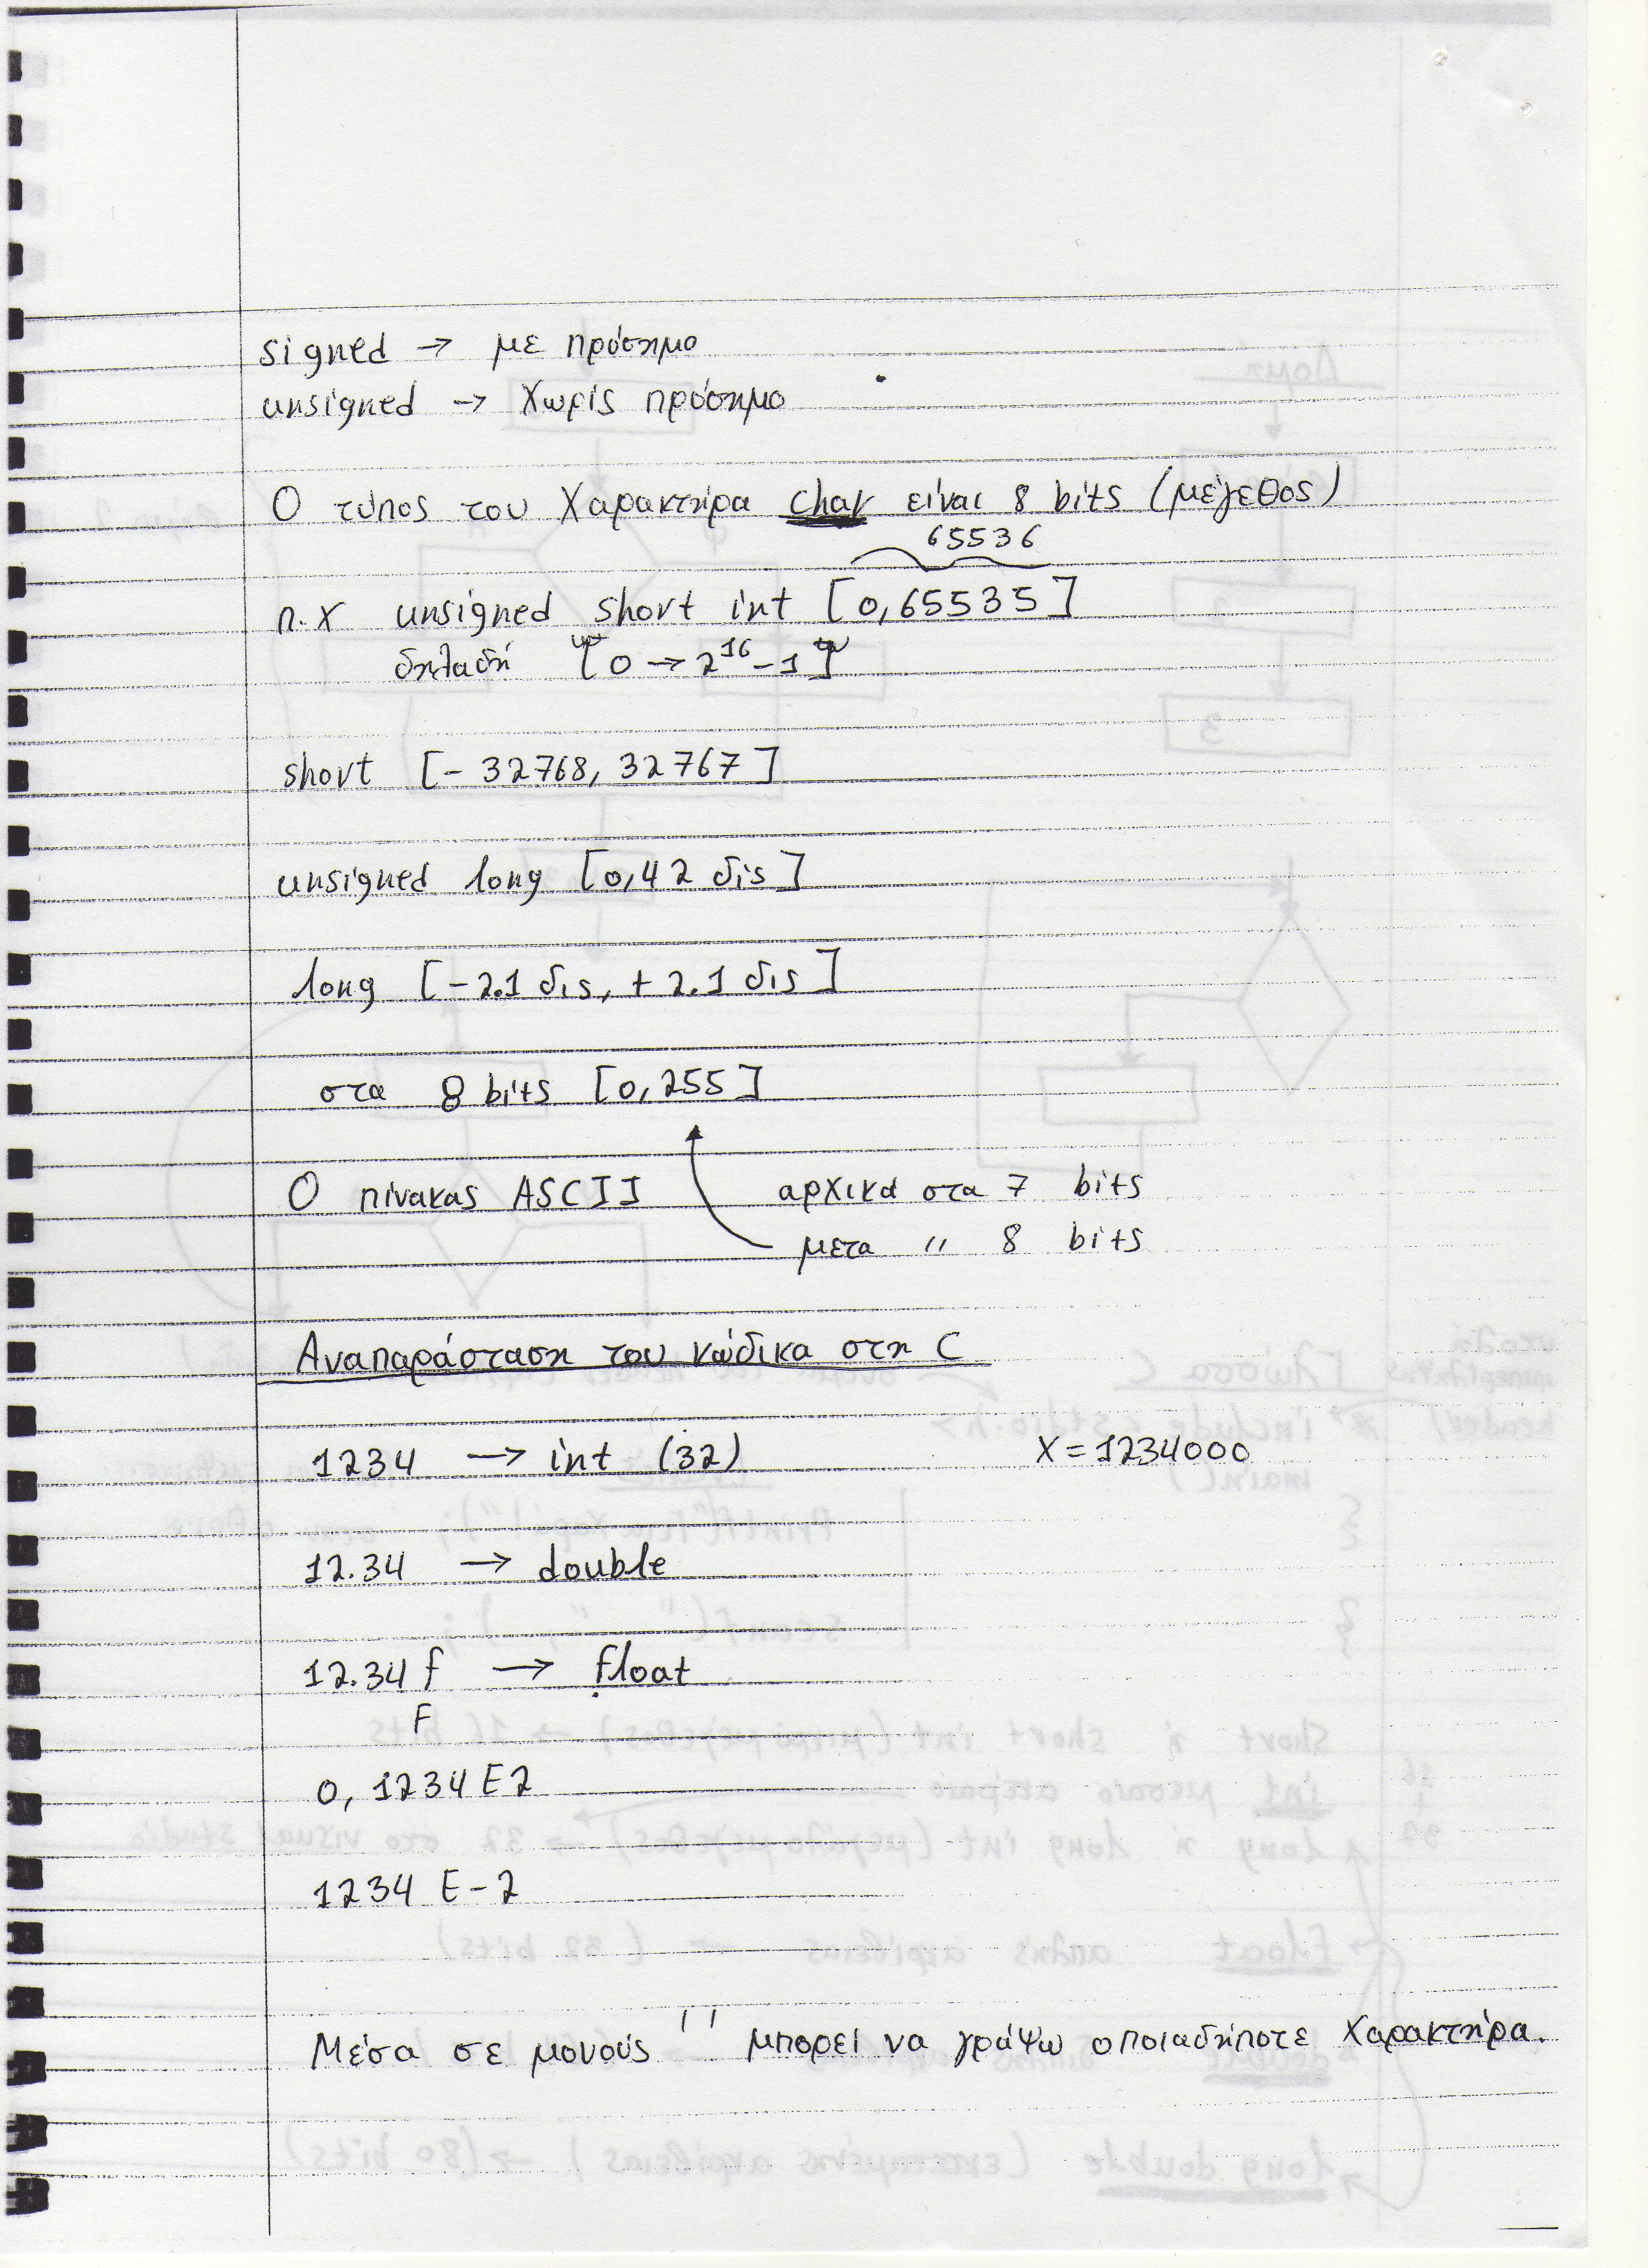 signed → με πρόσημο
unsigned → Χωρίς πρόσημο
Ο τύπος του Χαρακτήρα char είναι 8 bits (μέγεθος)
65536
π.χ unsigned short int [0,65535]
δηλαδή [0 → 2^16 - 1]
short [- 32768, 32767]
unsigned long [0,42 δις]
long [-2.1 δις, + 2.1 δις]
στα 8 bits [0,255]
Ο πίνακας ASCII αρχικά στα 7 bits
μετα " 8 bits
Αναπαράσταση του κώδικα στη C
1234 → int (32) X = 1234000
12.34 → double
12.34 f → float
F
0,1234 E2
1234 E-2
Μέσα σε μονούς ' ' μπορεί να γράψω οποιαδήποτε Χαρακτήρα.